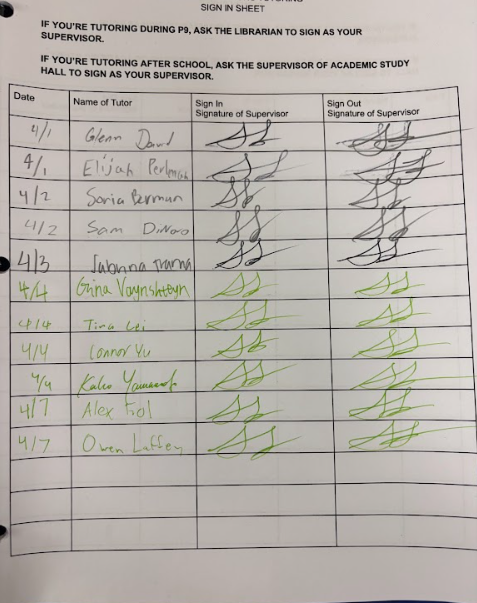 SIGN IN SHEET
IF YOU'RE TUTORING DURING P9, ASK THE LIBRARIAN TO SIGN AS YOUR
SUPERVISOR.
IF YOU'RE TUTORING AFTER SCHOOL, ASK THE SUPERVISOR OF ACADEMIC STUDY
HALL TO SIGN AS YOUR SUPERVISOR.
Date Name of Tutor Sign In Sign Out
Signature of Supervisor Signature of Supervisor
4/1 Glenn David
4/1 Elijah Perlman
4/2 Sonia Berman
4/2 Sam DiNovo
4/3
4/4 Grina Voynshteyn
4/4 Tina Lei
4/4 Connor Yu
4/4
4/7 Alex
4/7 Owen Laffey